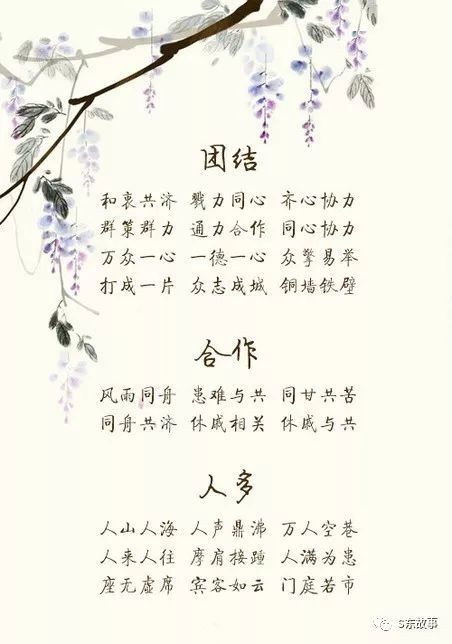 团结
和衷共济 戮力同心 齐心协力
群策群力 通力合作 同心协力
万众一心 一德一心 众擎易举
打成一片 众志成城 铜墙铁壁
合作
风雨同舟 患难与共 同甘共苦
同舟共济 休戚相关 休戚与共
人多
人山人海 人声鼎沸 万人空巷
人来人往 摩肩接踵 人满为患
座无虚席 宾客如云 门庭若市
S东故事